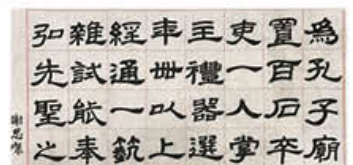 為孔子廟
置百石卒
吏一人掌
主禮器選
年卌以上
經通一藝
雜試能奉
弘先聖之